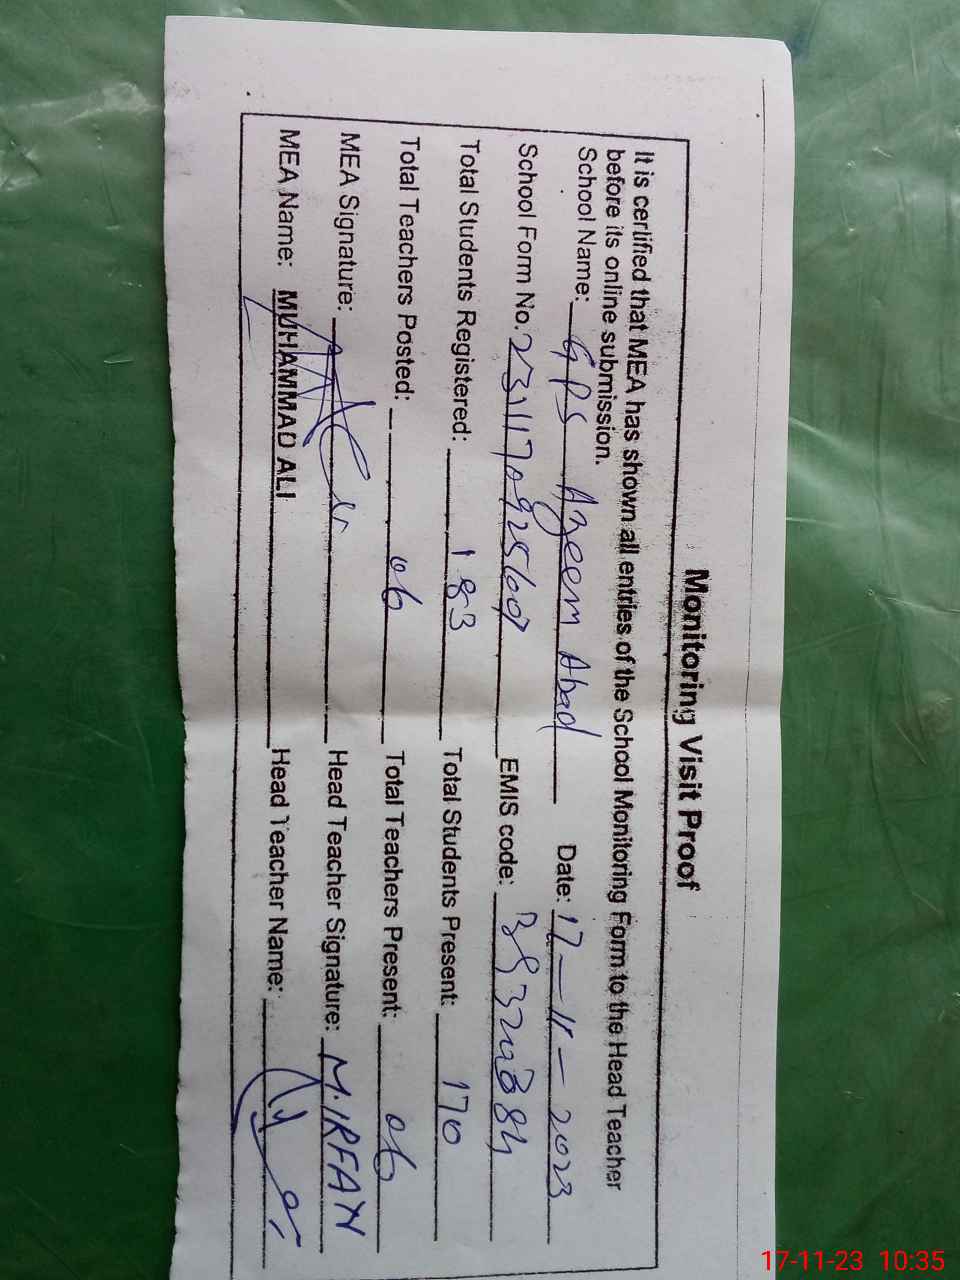 Monitoring Visit Proof
It is certified that MEA has shown all entries of the School Monitoring Form to the Head Teacher
before its online submission.
School Name: GPS Azeem Abad Date: 17-11-2023
School Form No. EMIS code:
Total Students Registered: 183 Total Students Present: 170
Total Teachers Posted: 06 Total Teachers Present: 06
MEA Signature: Head Teacher Signature: M.IRFAN
MEA Name: MUHAMMAD ALI Head Teacher Name:
17-11-23 10:35